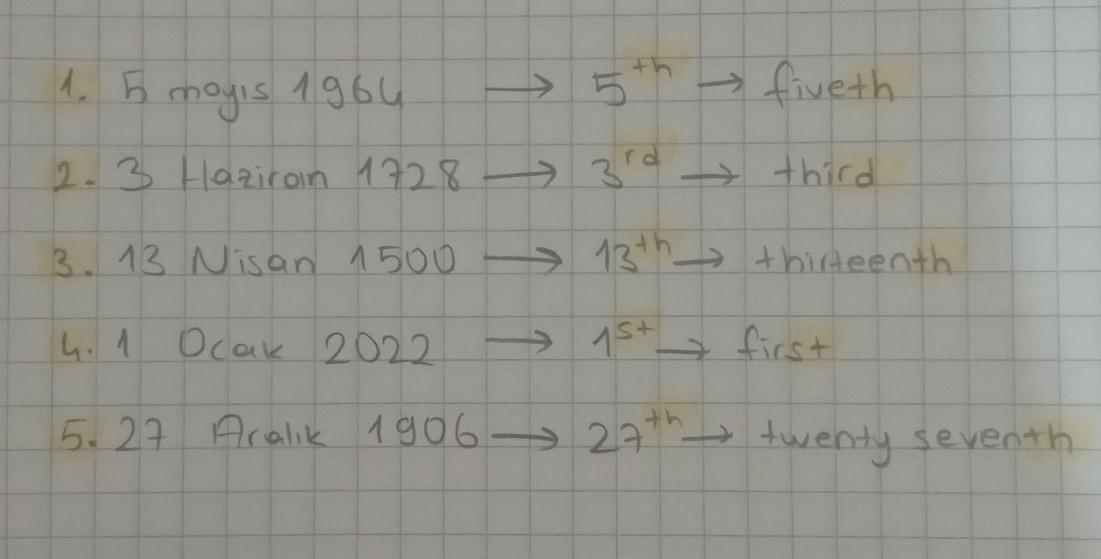 1. 5 mayıs 1964 → 5th → fiveth
2. 3 Haziran 1728 → 3rd → third
3. 13 Nisan 1500 → 13th → thirteenth
4. 1 Ocak 2022 → 1st → first
5. 27 Aralık 1906 → 27th → twenty seventh